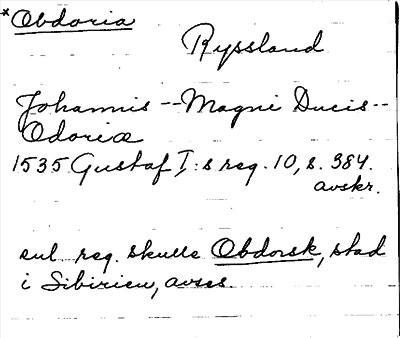 *Obdoria
Ryssland
Johannis -- Magni Ducis --
Odoriæ
1535 Gustaf I:s reg. 10, s. 384.
avskr.
enl. reg. skulle Obdorsk, stad
i Sibirien, avses.